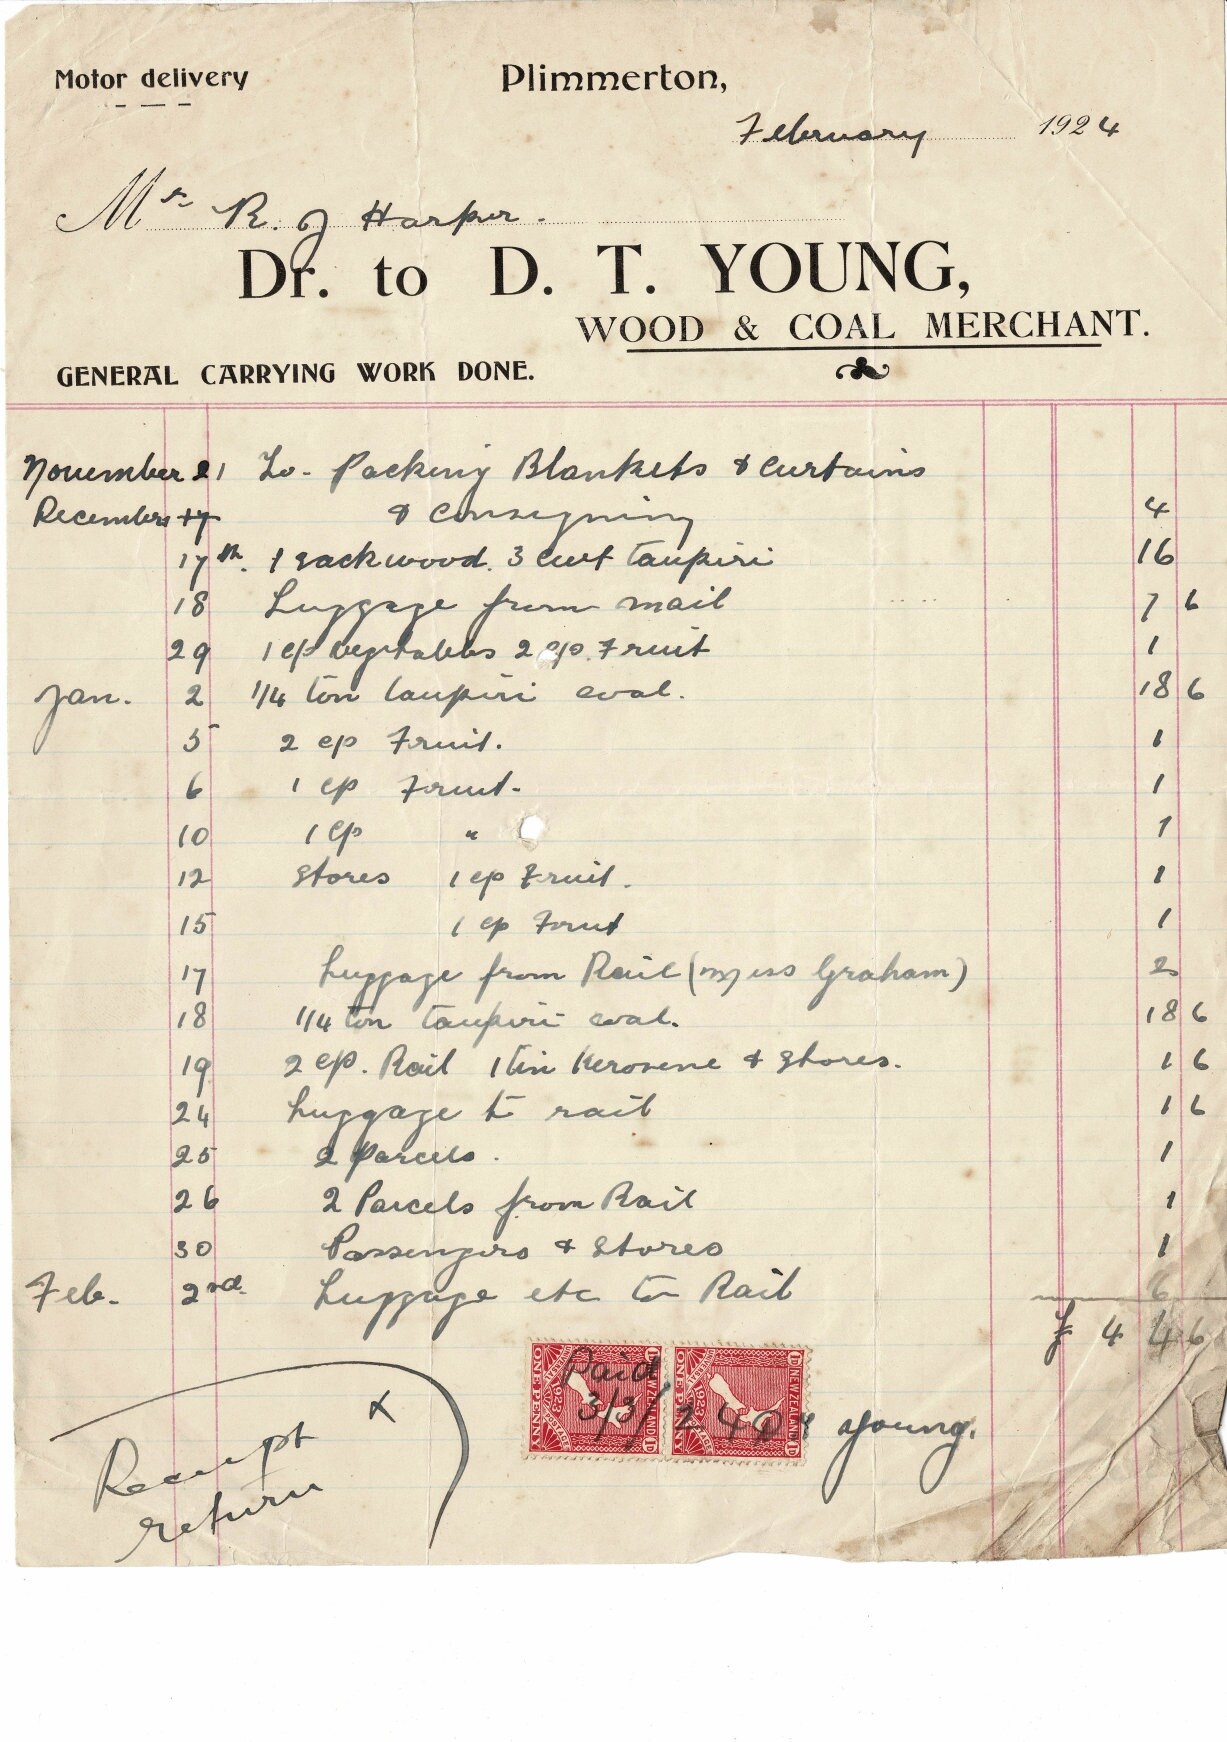 Motor delivery
Plimmerton,
February 1924
Mr. R. J Harper.
Dr. to D. T. YOUNG,
WOOD & COAL MERCHANT.
GENERAL CARRYING WORK DONE.
November 21 To - Packing Blankets & Curtains
December 17 & Consigning 4
17th. 1 sack wood. 3 cwt Taupiri 16
18 Luggage from mail 7 6
29 1 cp vegetables 2 cp. Fruit 1
Jan. 2 1/4 ton Taupiri coal. 18 6
5 2 cp Fruit. 1
6 1 cp Fruit. 1
10 1 cp " 1
12 Stores 1 cp Fruit. 1
15 1 cp Fruit 1
17 Luggage from Rail (Miss Graham) 2
18 1/4 ton Taupiri coal. 18 6
19 2 cp. Rail 1 tin Kerosene & Stores. 1 6
24 Luggage to rail 1 6
25 2 Parcels. 1
26 2 Parcels from Rail 1
30 Passengers & Stores 1
Feb. 2nd. Luggage etc to Rail 6
£ 4 4 6
NEW ZEALAND 1D ONE PENNY 1923 POSTAGE
NEW ZEALAND 1D ONE PENNY 1923 POSTAGE
Paid
3/3/24 Young.
x
Receipt
return